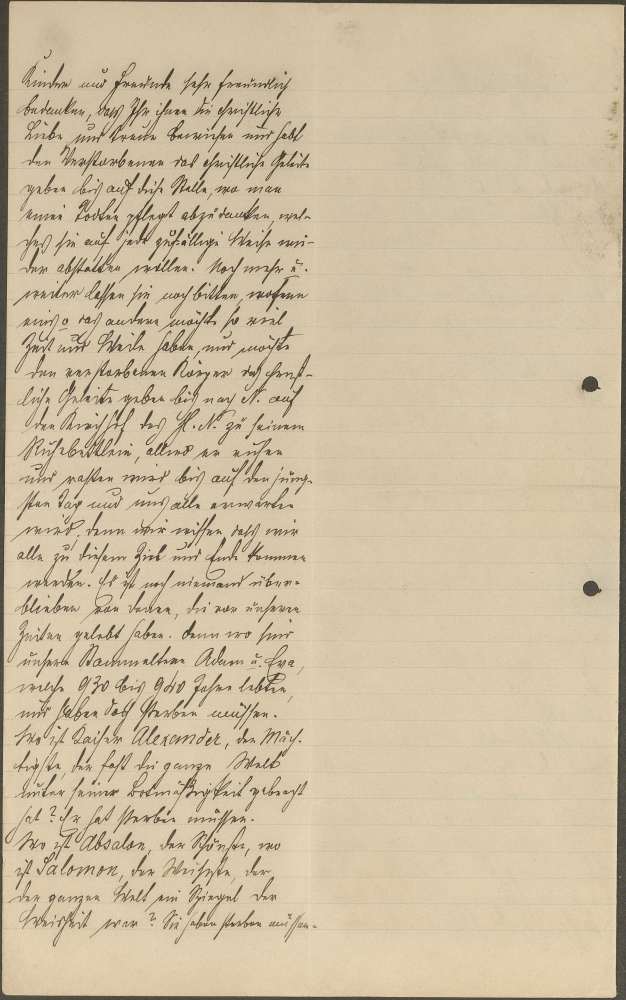 Kinder und Freunde sehr freundlich
bedanken, dass Ihr ihnen die christliche
Liebe und Treue bewiesen und habt
den Verstorbenen das christliche Geleite
geben bis auf diese Stelle, wo man
einen Todten pflegt abzudanken, wel-
ches sie auf jede zufällige Weise wie-
der abstatten wollen. Noch mehr u.
weiter lassen sie noch bitten, wofern
eins o das andere möchte so viel
Zeit und Weile haben, und möchte
den verstorbenen Körper das christ-
liche Geleite geben bis nach N. auf
den Kirchhof des H. N. zu seinem
Ruhebettlein, allwo er ruhen
und rasten wird bis auf den jüng-
sten Tag und uns alle erwarten
wird, denn wir wissen dass wir
alle zu diesem Ziel und Ende kommen
werden. Es ist noch niemand über-
blieben von denen, die vor unseren
Zeiten gelebt haben. Denn wo sind
unsere Stammeltern Adam u. Eva,
welche 930 bis 940 Jahre lebten,
und haben doch sterben müssen.
Wo ist Kaiser Alexander, der Mäch-
tigste, der fast die ganze Welt
unter seiner Botmäßigkeit gebracht
hat? Er hat sterben müssen.
Wo ist Absalon, der Schönste, wo
ist Salomon, der Weiseste, der
der ganzen Welt ein Spiegel der
Weisheit war? Sie haben sterben müssen.